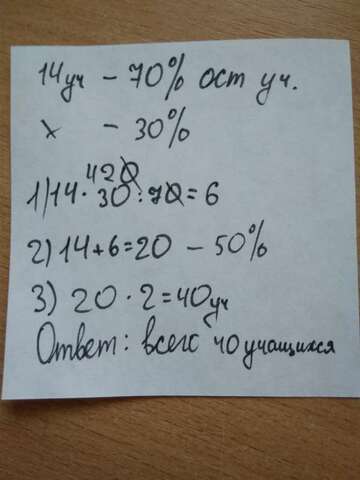 14уч – 70% ост уч.
х – 30%
420
1) 14 · 30 : 70 = 6
2) 14+6=20 – 50%
3) 20 · 2 = 40уч
Ответ: всего 40 учащихся